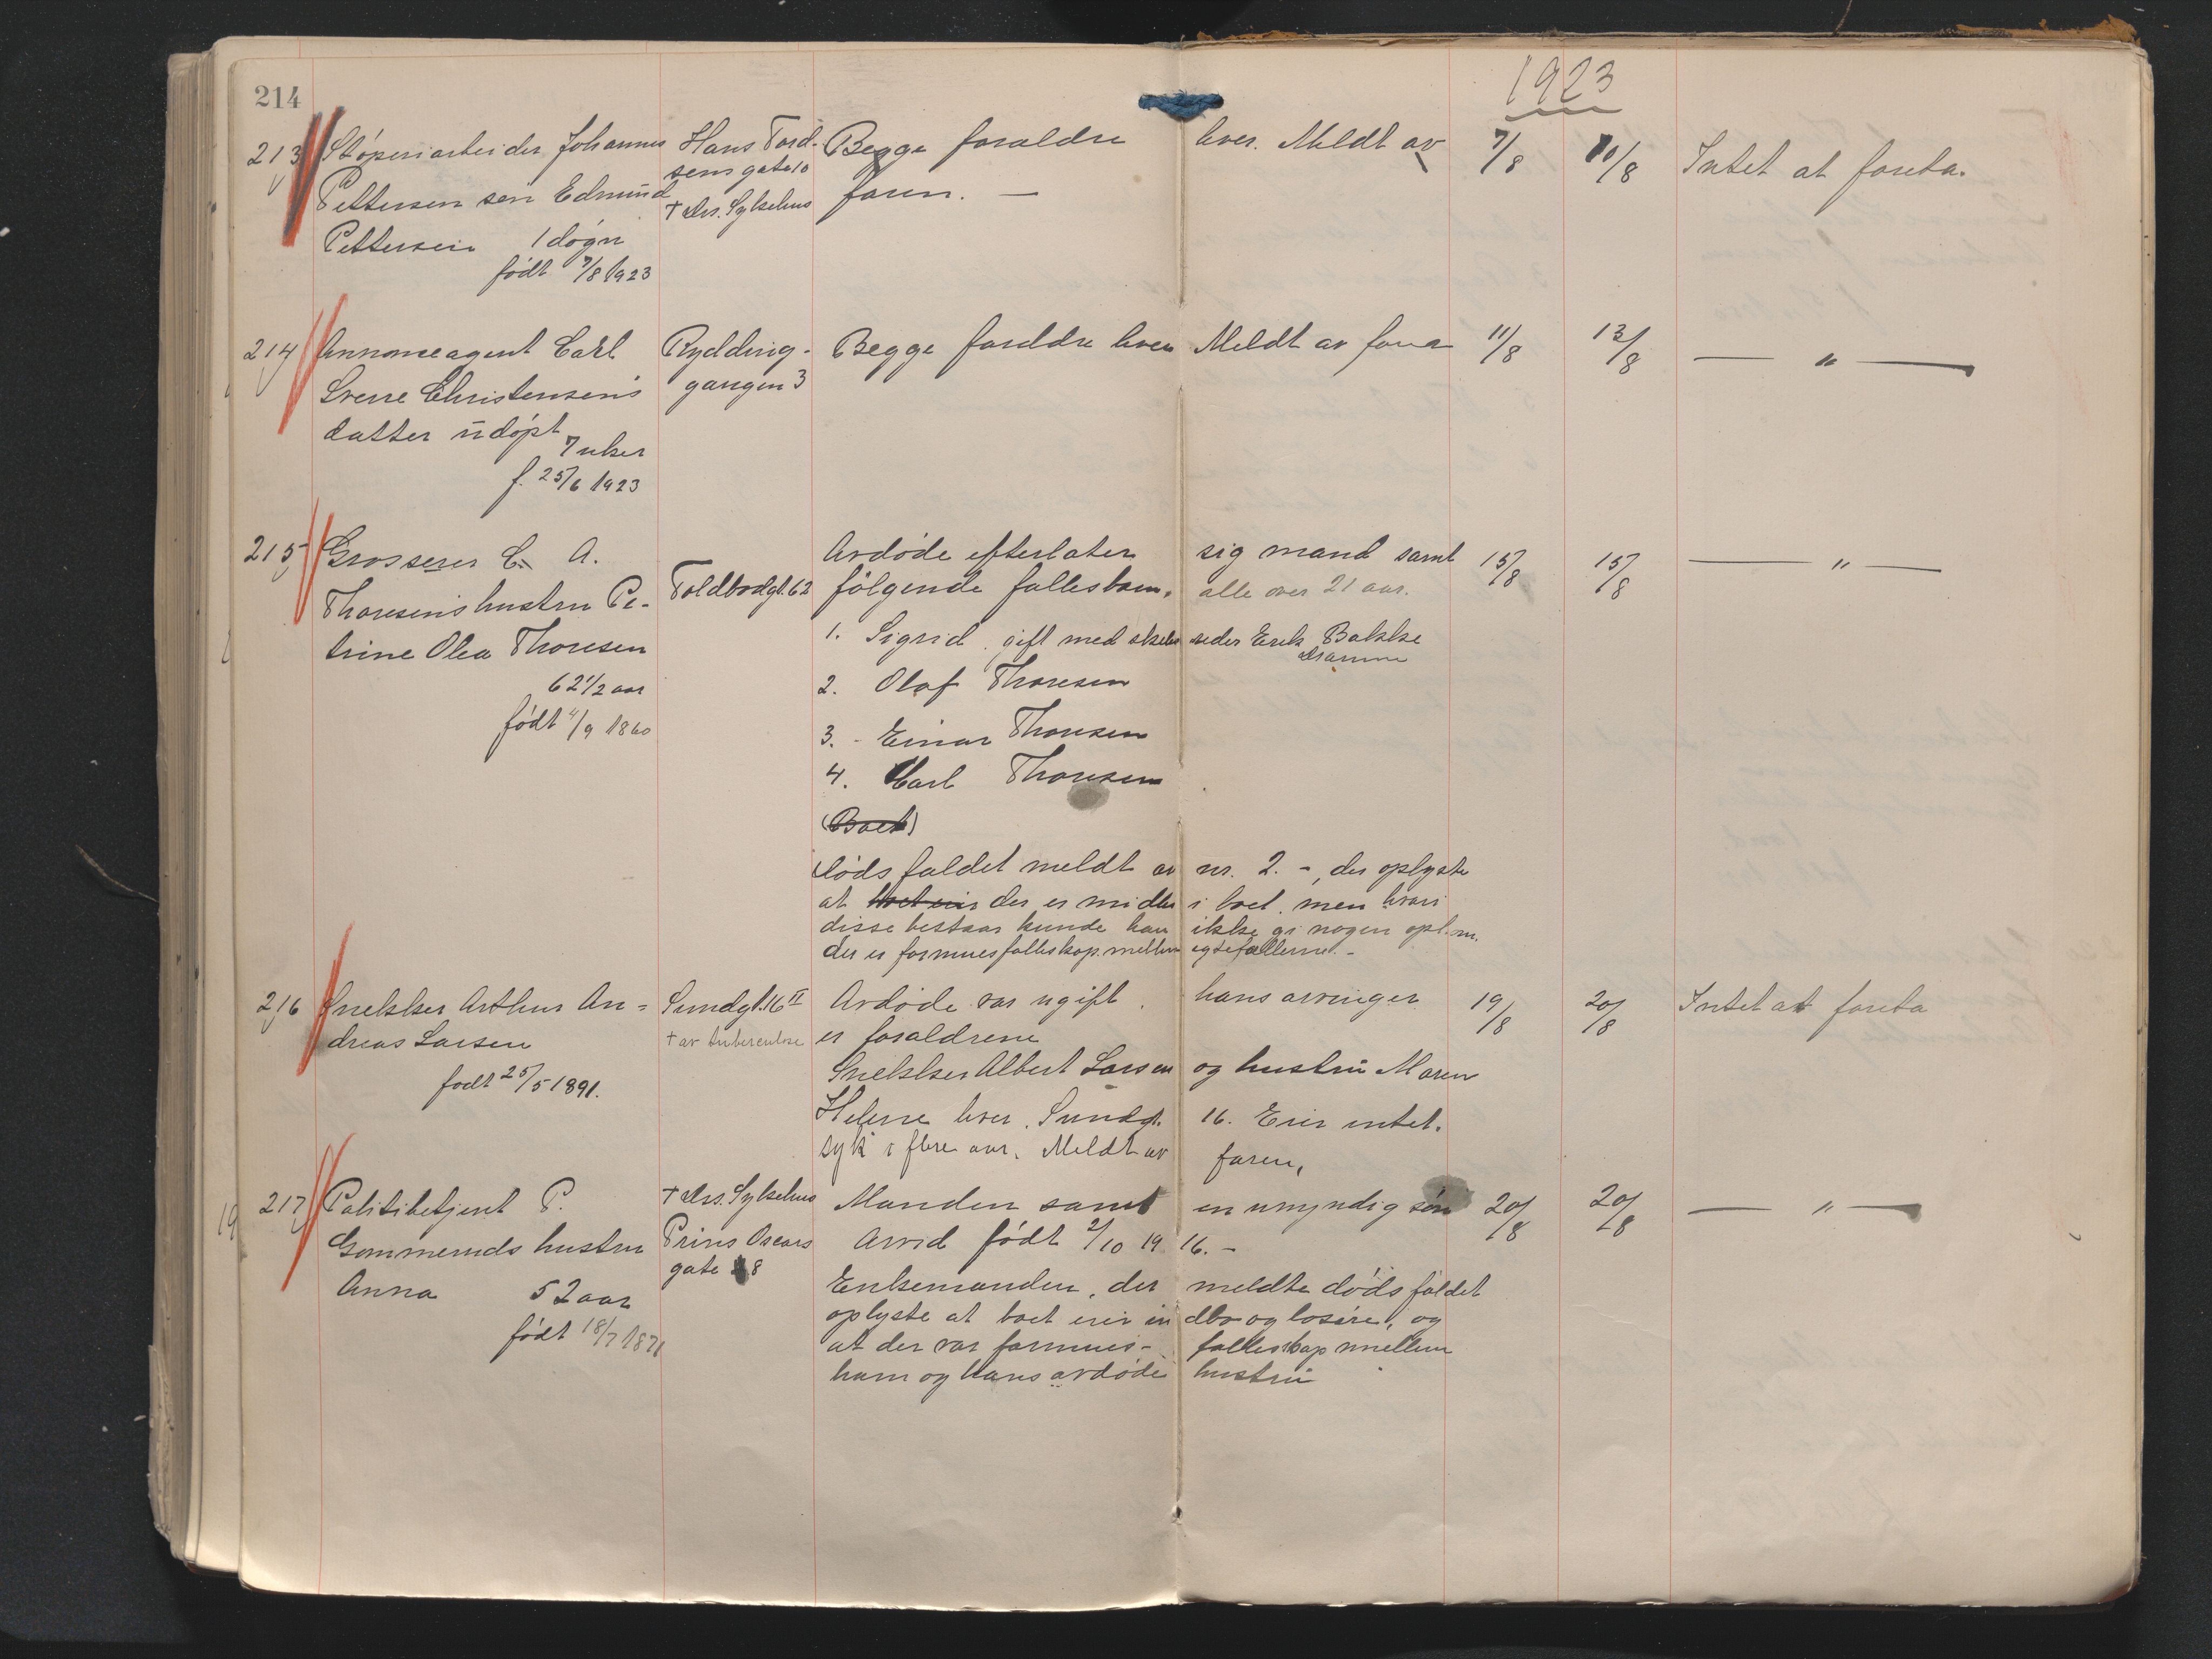 214
1923
213 Støperiarbeider Johannes
Pettersen søn Edmund
Pettersen 1 døgn
født 7/8 1923
Hans Tord-
sens gate 10
+ Drs. Sykehus
Begge foraldre lever. Meldt av
faren. —
7/8 10/8 Intet at foreta.
214 Annonseagent Carl
Sverre Christensens
datter udøpt
7 uker
f. 25/6 1923
Rydding-
gangen 3
Begge foreldre lever Meldt av faren
11/8 13/8 — " —
215 Grosserer C. A.
Thoresens hustru Pe-
trine Olea Thoresen
62 1/2 aar
født 4/9 1860
Toldbodgt. 62
Avdøde efterlater sig mand samt
følgende fellesbarn, alle over 21 aar.
1. Sigrid gift med Erik Bakke
Dramm
2. Olaf Thoresen
3. - Einar Thoresen
4. Carl Thoresen
(Boet)
Dødsfaldet meldt av nr. 2. -, der oplyste
at boet eier der er midler i boet, men hvori
disse bestaar kunde han ikke gi nogen opl. om.
der er formuesfellesskap. mellem egtefællerne. -
15/8 15/8 — " —
216 Snekker Arthur An=
dreas Larsen
født 25/5 1891.
Sundgt. 16 II
+ av tuberculose
Avdøde var ugift. hans arvinger
er foraldrene
Snekker Albert Larsen og hustru Maren
Helene lever. Sundgt. 16. Eier intet.
syk i flere aar. Meldt av faren,
19/8 20/8 Intet at foreta
217 Politibetjent P.
Gommeruds hustru
Anna 52 aar
født 18/7 1871
+ Drs. Sykehus
Prins Oscars
gate 8
Manden samt en umyndig søn
Arvid født 2/10 1916. -
Enkemanden, der meldte dødsfaldet
oplyste at boet eier indbo og losøre, og
at der var formues- fellesskap mellem
ham og hans avdøde hustru
20/8 20/8 — " —
19